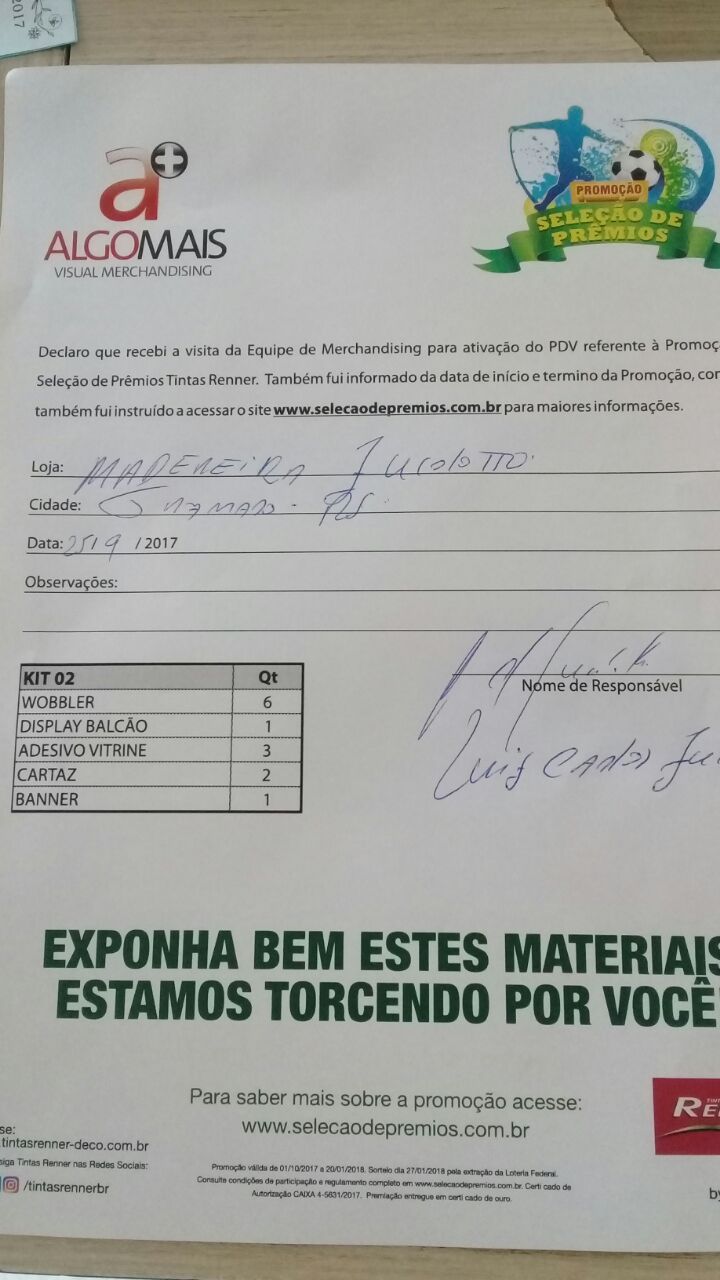 2017
a+
ALGOMAIS
VISUAL MERCHANDISING
PROMOÇÃO
SELEÇÃO DE
PRÊMIOS
Declaro que recebi a visita da Equipe de Merchandising para ativação do PDV referente à Promoç
Seleção de Prêmios Tintas Renner. Também fui informado da data de início e termino da Promoção, con
também fui instruído a acessar o site www.selecaodepremios.com.br para maiores informações.
Loja: MADEREIRA
Cidade: GRAMADO - RS
Data: 25/9 / 2017
Observações:
Nome de Responsável
Luis Carlos
KIT 02 Qt
WOBBLER 6
DISPLAY BALCÃO 1
ADESIVO VITRINE 3
CARTAZ 2
BANNER 1
EXPONHA BEM ESTES MATERIAIS
ESTAMOS TORCENDO POR VOCÊ!
Para saber mais sobre a promoção acesse:
www.selecaodepremios.com.br
se:
.tintasrenner-deco.com.br
siga Tintas Renner nas Redes Sociais:
/tintasrennerbr
Promoção válida de 01/10/2017 a 20/01/2018. Sorteio dia 27/01/2018 pela extração da Loteria Federal.
Consulte condições de participação e regulamento completo em www.selecaodepremios.com.br. Certi cado de
Autorização CAIXA 4-5631/2017. Premiação entregue em certi cado de ouro.
TINT
RE
by